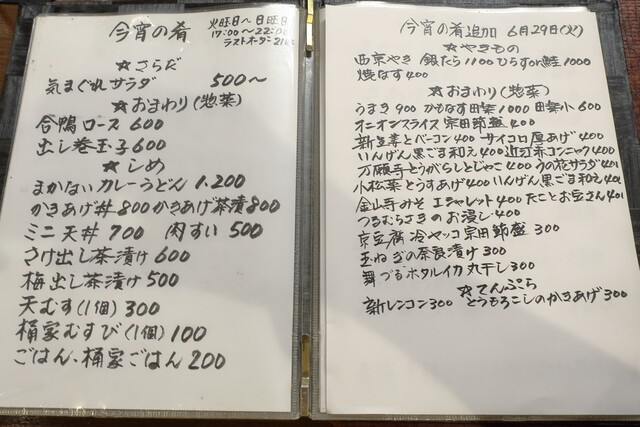 今宵の肴
火曜日〜日曜日
17:00〜22:00
ラストオーダー21
☆さらだ
気まぐれサラダ 500〜
☆おまわり(惣菜)
合鴨ロース 600
出し巻玉子600
☆しめ
まかないカレーうどん 1,200
かきあげ丼 800 かきあげ茶漬800
ミニ天丼 700 肉すい 500
さけ出し茶漬け 600
梅出し茶漬け 500
天むす(1個) 300
桶家むすび(1個) 100
ごはん、桶家ごはん 200
今宵の肴追加 6月29日(火)
☆やきもの
西京やき 銀たら1100 ひらすor鮭 1000
焼なす400
☆おまわり(惣菜)
うまき 900 かもなす田楽1000 田楽小 600
オニオンスライス 宗田節盛 400
新豆とベーコン400 サイコロ厚あげ400
いんげん黒ごま和え400 近江赤コンニャク400
万願寺とうがらしとじゃこ400 うの花サラダ40
小松菜とうすあげ400 いんげん黒ごま和え40
金山寺みそ エシャレット400 たことお豆さん40
つるむらさきのお浸し400
京豆腐 冷ヤッコ 宗田節盛 300
玉ねぎの奈良漬け300
舞づるホタルイカ 丸干し300
☆てんぷら
新レンコン300 とうもろこしのかきあげ300